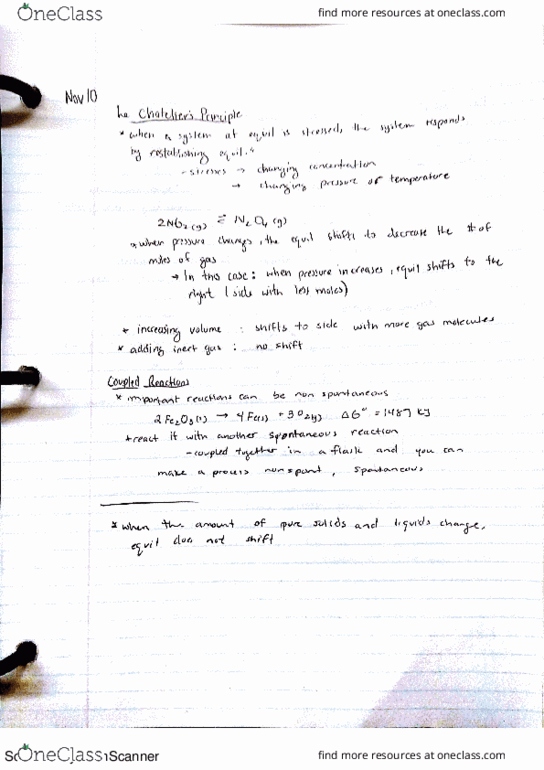 OneClass find more resources at oneclass.com
Nov 10
Le Chatelier's Principle
* when a system at equil is stressed, the system responds
by restablishing equil.*
- stresses → changing concentration
→ changing pressure or temperature
2NO₂(g) ⇌ N₂O₄(g)
* when pressure changes, the equil shifts to decrease the # of
moles of gas
→ In this case: when pressure increases, equil shifts to the
right (side with less moles)
* increasing volume : shifts to side with more gas molecules
* adding inert gas : no shift
Coupled Reactions
* important reactions can be non spontaneous
2Fe₂O₃(s) → 4Fe(s) + 3O₂(g) ΔG° = 1487 kJ
* react it with another spontaneous reaction
- coupled together in a flask and you can
make a process nonspont, spontaneous
* when the amount of pure solids and liquids change,
equil does not shift
OneClass Scanner find more resources at oneclass.com